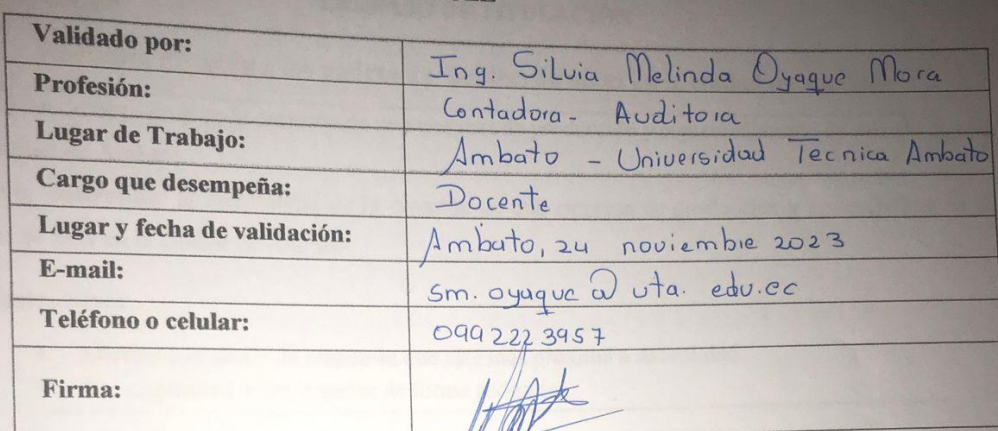 Validado por: Ing. Silvia Melinda Oyaque Mora
Profesión: Contadora - Auditora
Lugar de Trabajo: Ambato - Universidad Tecnica Ambato
Cargo que desempeña: Docente
Lugar y fecha de validación: Ambato, 24 noviembre 2023
E-mail: sm.oyaque@uta.edu.ec
Teléfono o celular: 0992223957
Firma: